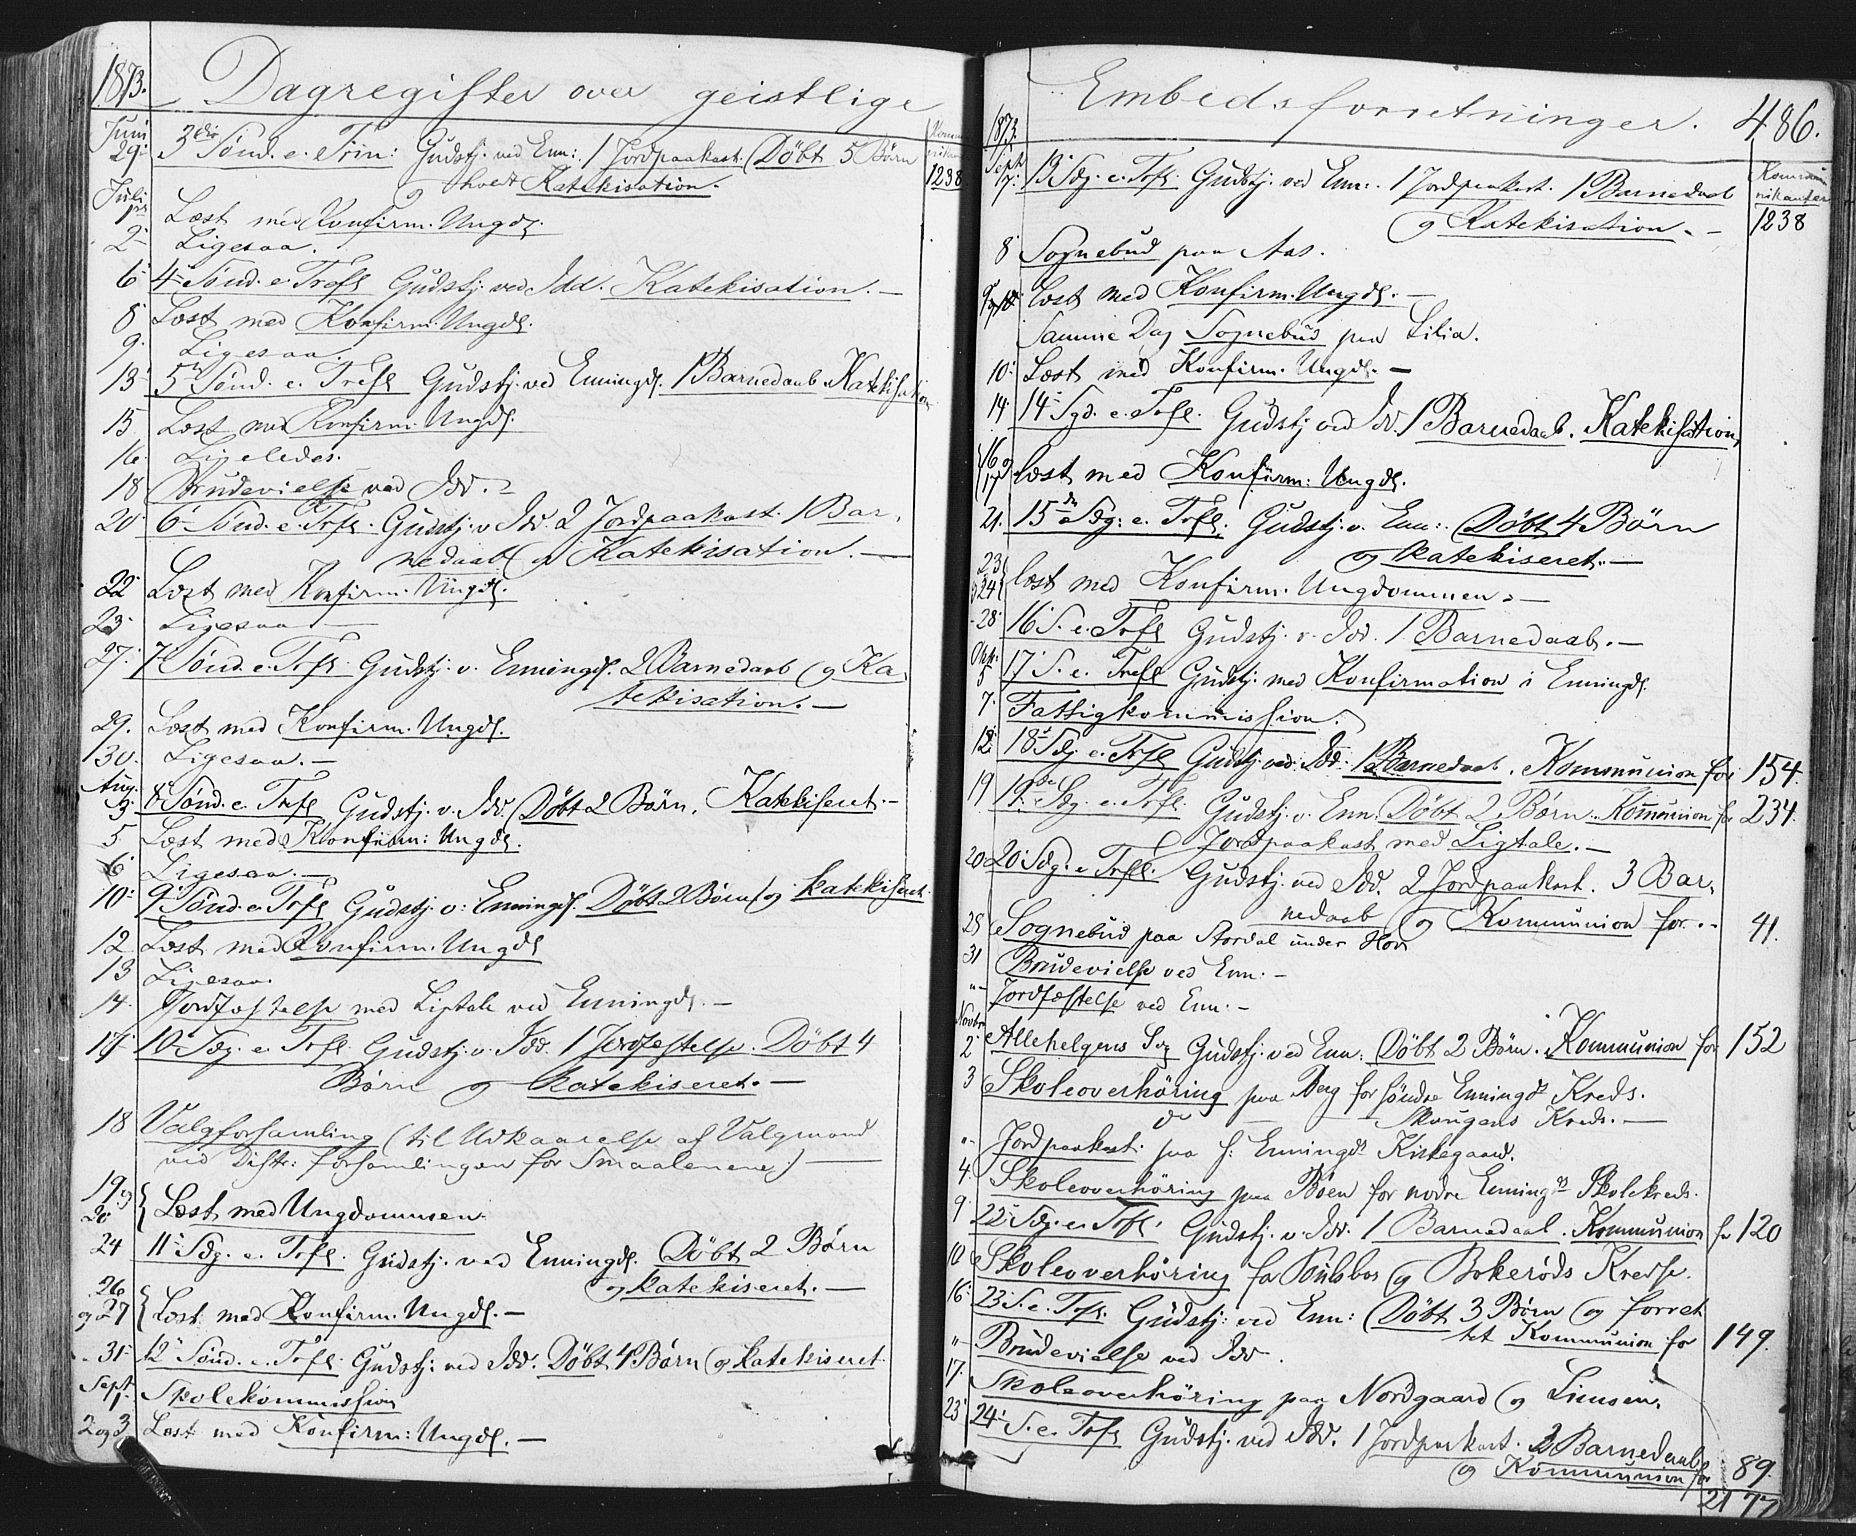 1873. Dagregister over geistlige
Juni 29. 3die Sønd. e. Trin: Gudstj. ved Enn: 1 Jordpaakast. Døbt 5 Børn 1238
og holdt Katekisation.
Juli Læst med Konfirm. Ungd.
2 Ligesaa.
6 4 Sønd. e. Trefl Gudstj. ved Idd. Katekisation. —
8 Læst med Konfirm. Ungd.
9. Ligesaa.
13 5 Sønd. e. Trefl Gudstj. ved Enningd. 1 Barnedaab. Katekisation
15 Læst med Konfirm. Ungd.
16. Ligeledes.
18 Brudevielse ved Idd. —
20 6 Sønd. e. Trfl. Gudstj. v. Idd 2 Jordpaakast. 1 Bar,
nedaab og Katekisation. —
22 Læst med Konfirm. Ungd.
23 Ligesaa —
27. 7 Sønd. e. Trfl. Gudstj. v. Enningd. 2 Barnedaab og Ka,
tekisation. —
29. Læst med Konfirm. Ungd.
30. Ligesaa. —
Aug. 3. 8 Sønd. e. Trfl Gudstj. v. Idd. Døbt 2 Børn. Katekiseret. —
5 Læst med Konfirm: Ungd.
6 Ligesaa. —
10. 9 Sønd. e. Trfl Gudstj. v: Enningd. Døbt 2 Børn og katekiseret.
12 Læst med Konfirm. Ungd
13 Ligesaa.
14. Jordfæstelse med Ligtale ved Enningd. —
17 10 Sdg. e. Trfl. Gudstj. v. Idd. 1 Jordfestelse. Døbt 4
Børn og katekiseret. —
18 Valgforsamling (til Udkaarelse af Valgmænd
ved Distr: forsamlingen for Smaalenene) —
19 og 20 Læst med Ungdommen.
24 11 Sdg. e. Trfl. Gudstj. ved Enningd. Døbt 2 Børn
og katekiseret. —
26 og 27 Læst med Konfirm. Ungd. —
31 12 Sønd. e. Trfl. Gudstj. ved Idd. Døbt 4 Børn og katekiseret
Sept. 1. Skolekommission
2 og 3 Læst med Konfirm: Ungd. —
Embedsforretninger. 486.
1873.
Kommunikanter
Sept 7. 13 Sdg. e. Trfl. Gudstj. ved Enn: 1 Jordpaakast. 1 Barnedaab
og Katekisation. — 1238
8 Sognebud paa Aas.
Læst med Konfirm. Ungd. —
Samme Dag Sognebud paa Lilia.
10. Læst med Konfirm. Ungd. —
14. 14 Sgd. e. Trfl. Gudstj ved Idd. 1 Barnedaab. Katekisation,
16 og 17 læst med Konfirm: Ungd.
21. 15 de Sdg. e. Trfl. Gudstj. v. Enn: Døbt 4 Børn
og katekiseret. —
23 24 læst med Konfirm. Ungdommen. —
28 16 S. e. Trfl Gudstj. v. Idd. 1 Barnedaab. —
Oktr. 5 17 S. e. Trefl Gudstj. med Konfirmation i Enningd.
7. Fattigkommission.
12 18 Sdg. e. Trfl Gudstj. ved Idd. 1 Barnedaab. Kommunion for 154.
19 19 de Sdg. e. Trfl. Gudstj. v. Enn. Døbt 2 Børn. Kommunion for 234.
Jordpaakast med Ligtale. —
20 Sdg. e. Trfl. Gudstj. ved Idd. 2 Jordpaakast. 3 Bar,
nedaab og Kommunion for. — 41.
25 Sognebud paa Stordal under Hov
31 Brudevielse ved Enn. —
"— Jordfæstelse ved Enn. —
Novbr 2 Allehelgens Sdg Gudstj. ved Enn: Døbt 2 Børn. Kommunion for 152
3 Skoleoverhöring paa Berg for søndre Enningds Kreds.
do Skougens Kreds. —
"- Jordpaakast. paa s. Enningds Kirkegaard.
4. Skoleoverhöring paa Böen for nodre Ennings Skolekreds.
9. 22 Sdg. e. Trfl. Gudstj. v. Idd. 1 Barnedaab. Kommunion for 120
10 Skoleoverhöring for og Bokerøds Kredse.
16. 23 S. e. Trfl. Gudstj: ved Enn: Døbt 3 Børn og forret
tet Kommunion for 149.
" Brudevielse ved Idd.
17. Skoleoverhöring paa Nordgaard og
23 24 S. e. Trfl Gudstj. ved Idd. 1 Jordpaakast. 2 Barnedaab
og Kommunion for 89.
2177